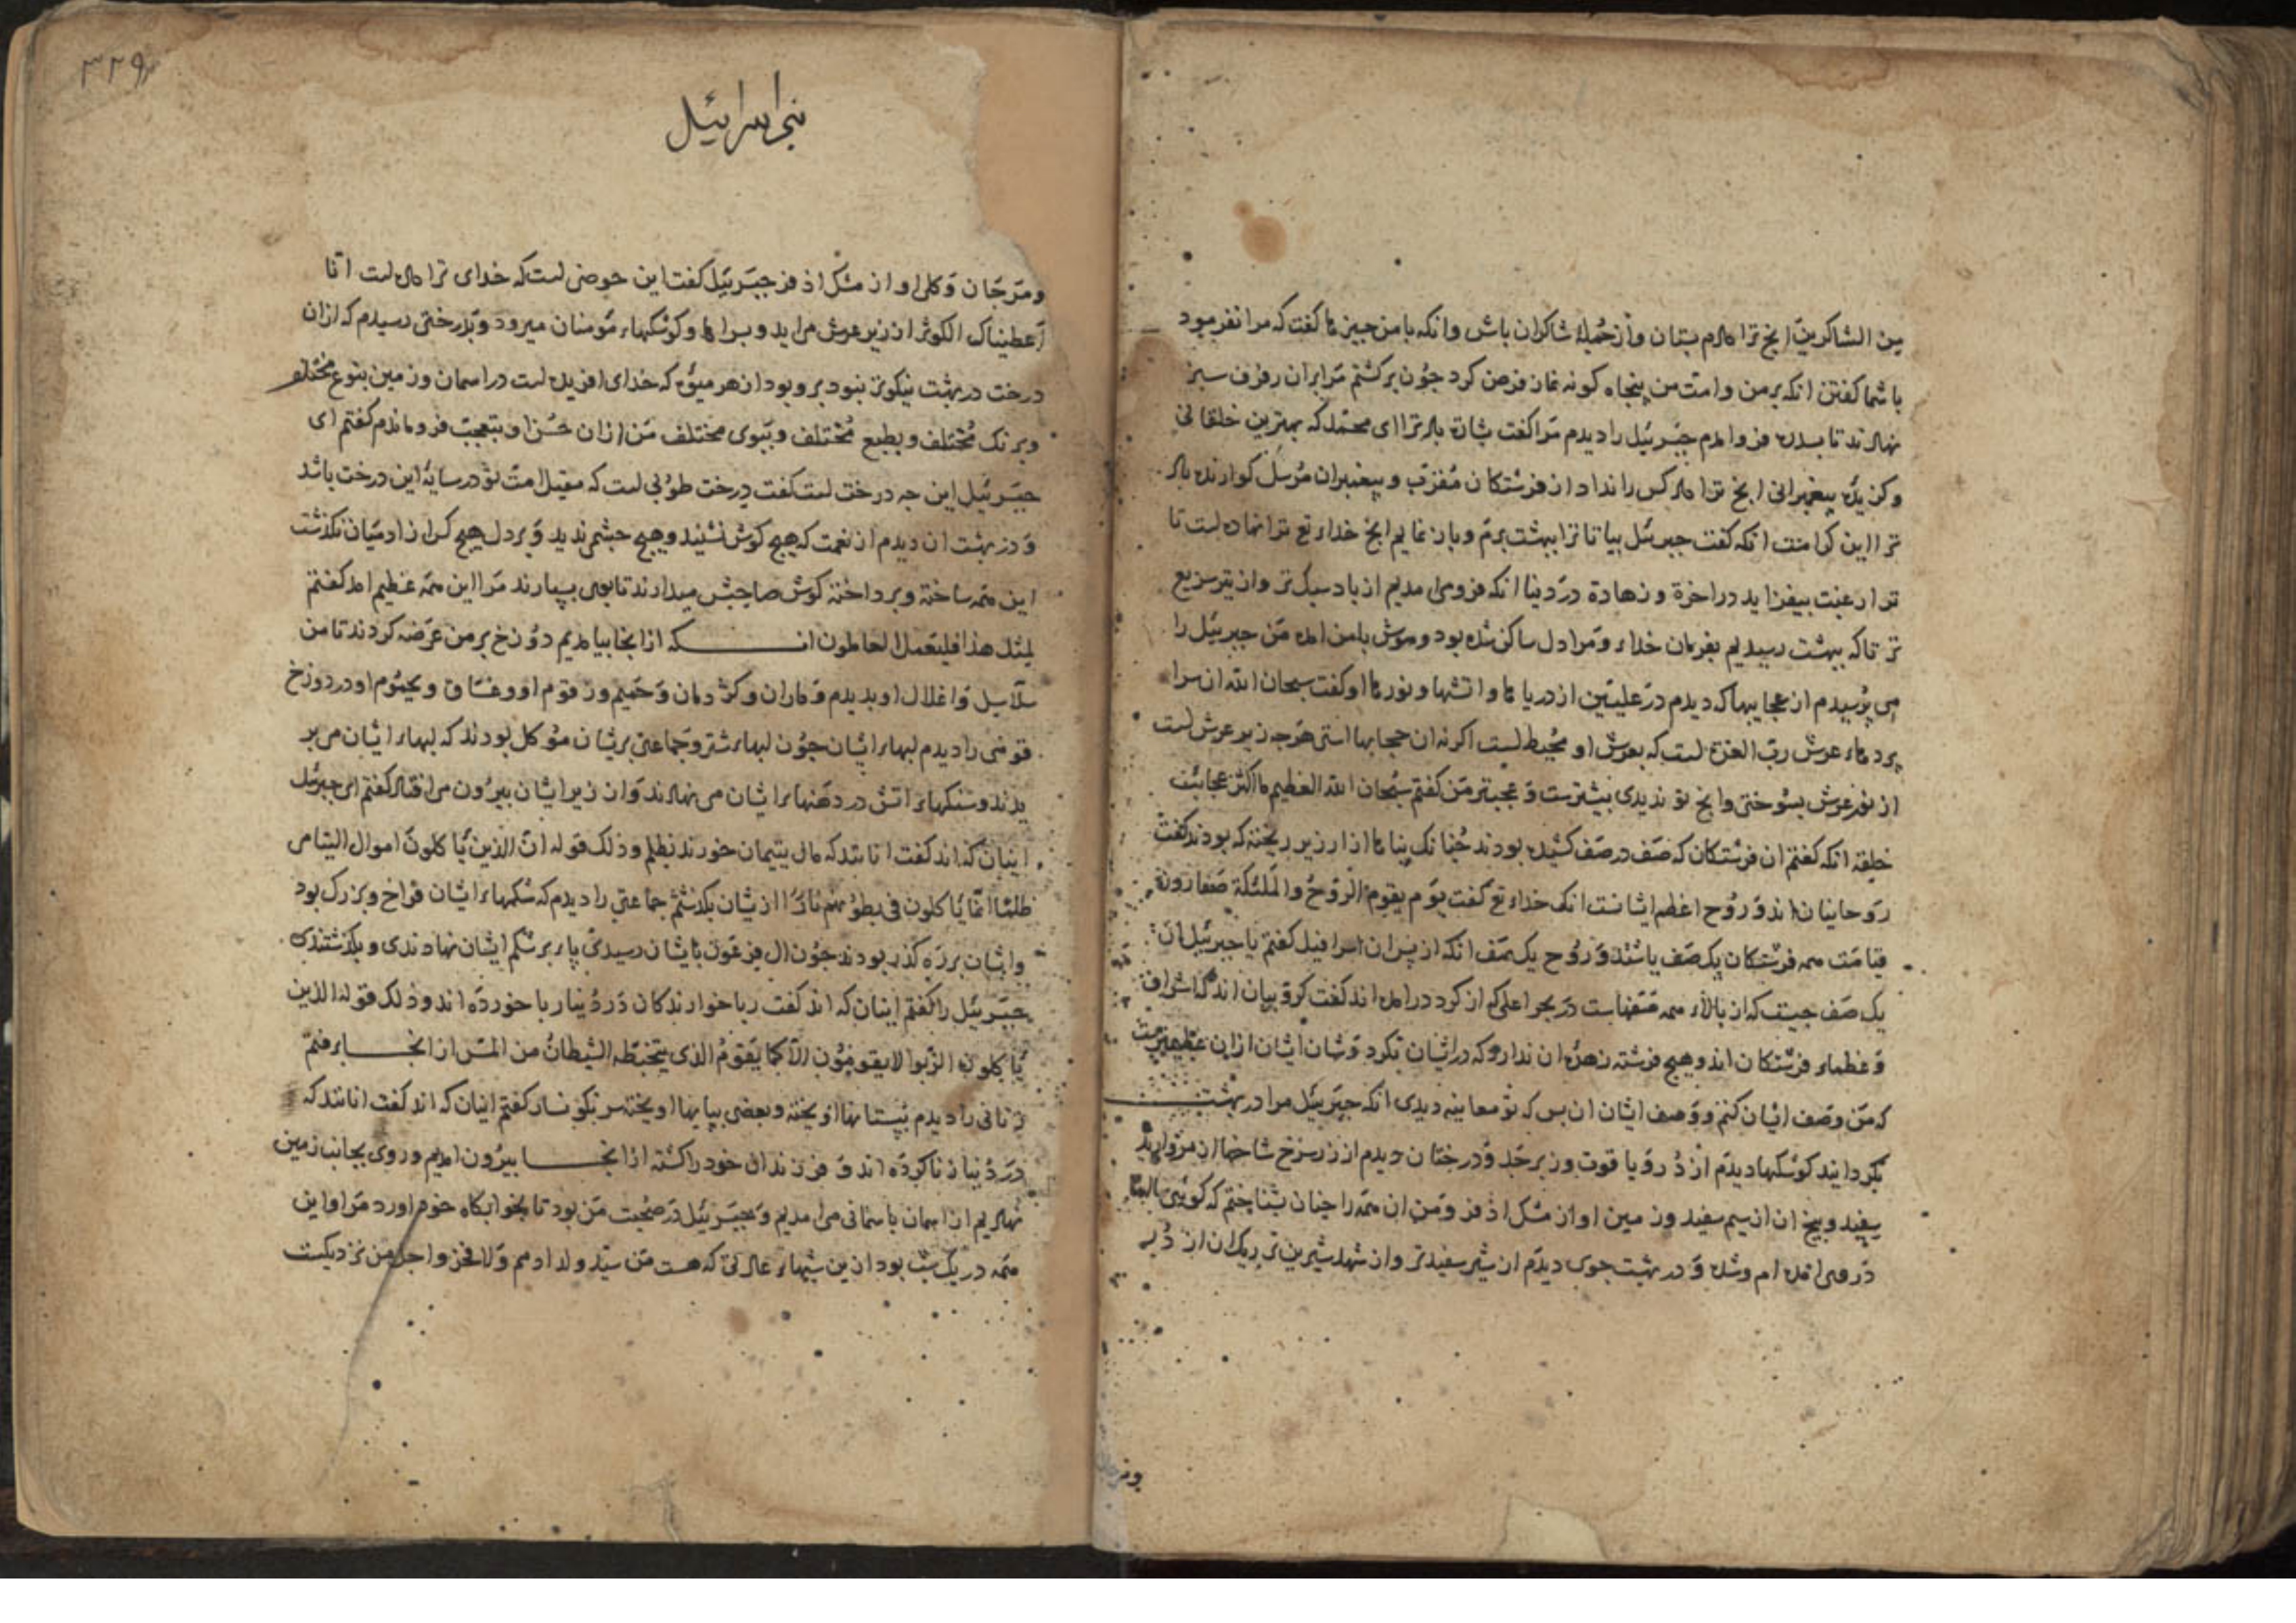 من الشاکرین انچ ترا دادم بستان و از جمله شاکران باش وانکه با من چیزها کفت که مرا نفرمود
با شما کفتن انکه بر من و امت من پنجاه کونه نماز فرض کرد چون برکشتم مرا بران رفرف سبز
نهادند تا بسدره فرو امدم جبرئیل را دیدم مرا کفت بشارت باد ترا ای محمد که بهترین خلقانی
وکزیده پیغمبرانی انچ ترا داد کس را نداد از فرشتکان مقرب و پیغمبران مرسل کوارنده باد
ترا این کرامت انکه کفت جبرئیل بیا تا ترا ببهشت برم و باز نمایم انچ خداء تع ترا نهاده است تا
ترا رغبت بیفزاید در اخرة و زهادة در دنیا انکه فرو می امدیم از باد سبک تر و از تیر سریع
تر تا که ببهشت رسیدیم بفرمان خداء و مرا دل ساکن شده بود و هوش با من امده من جبرئیل را
می پرسیدم از عجایبها که دیدم در علیین از دریاها و اتشها و نورها او کفت سبحان الله ان سرا
پردهاء عرش رب العزة است که بعرش او محیط است اکر نه ان حجابها استی هرچه زیر عرش است
از نور عرش بسوختی وانچ تو ندیدی بیشترست و عجبتر من کفتم سبحان الله العظیم ما اکثر عجائب
خلقه انکه کفتم ان فرشتکان که صف در صف کشیده بودند چنانک بناها از ارزیز ریخته که بودند کفت
روحانیان اند و روح اعظم ایشانست انک خداء تع کفت یوم یقوم الروح والملئکة صفا روز
قیامت همه فرشتکان یک صف باشند و روح یک صف انکه از پس ان اسرافیل کفتم یا جبرئیل ان
یک صف چیست که از بالاء همه صفهاست در بحر اعلی که از کرد در امده اند کفت کروبیان اند که اشراف
و عظماء فرشتکان اند و هیچ فرشته زهره ان ندارد که در ایشان نکرد و شان ایشان ازان عظیم ترست
که من وصف ایشان کنم و وصف ایشان ان بس که تو معاینه دیدی انکه جبرئیل مرا در بهشت
بکردانید کوشکها دیدم از در و یاقوت و زبرجد و درختان دیدم از زر سرخ شاخها ان مروارید
سپید و بیخ ان از سیم سفید و زمین او از مشک اذفر و من ان همه را چنان بشناختم که کوئی سالها
در وی امده ام و شده و در بهشت جوی دیدم از شیر سفیدتر و از شهد شیرین تر ریک ان از در
۳۲۹
بنی اسرائیل
و مرجان و کل او از مشک اذفر جبرئیل کفت این حوضی است که خدای ترا داده است انا
اعطیناک الکوثر از زیر عرش می اید و بسراها و کوشکهاء مومنان میرود و بدرختی رسیدم که ازان
درخت در بهشت نیکوتر نبود برو بود از هر میوه که خدای افریده است در اسمان و زمین بنوع مختلف
و برنک مختلف و بطبع مختلف و ببوی مختلف من ازان حسن او بتعجب فرو ماندم کفتم ای
جبرئیل این چه درخت است کفت درخت طوبی است که مقیل امت تو در سایهٔ این درخت باشد
و در بهشت ان دیدم از نعمت که هیچ کوش نشنید و هیچ چشم ندید و بر دل هیچ کس از ادمیان نکذشت
این همه ساخته و پرداخته کوش صاحبش میدارند تا بوی بسپارند مرا این همه عظیم امد کفتم
لمثل هذا فلیعمل العاملون انکه ازانجا بیامدیم دوزخ بر من عرضه کردند تا من
سلاسل و اغلال او بدیدم و ماران و کژدمان و حمیم و زقوم او و غساق و یحموم او در دوزخ
قومی را دیدم لبهاء ایشان چون لبهاء شتر و جماعتی بریشان موکل بودند که لبهاء ایشان می بر
یدند و سنکهاء اتش در دهنهاء ایشان می نهادند و از زیر ایشان بیرون می افتاد کفتم ای جبرئیل
اینان که اند کفت انانند که مال یتیمان خورند بظلم و ذلک قوله ان الذین یاکلون اموال الیتامی
ظلما انما یاکلون فی بطونهم نارا ازیشان بکذشتم جماعتی را دیدم که شکمهاء ایشان فراخ و بزرک بود
وایشان بر ره کذر بودند چون ال فرعون بایشان رسیدی پاء بر شکم ایشان نهادندی و بکذشتندی
جبرئیل را کفتم اینان که اند کفت رباخوارندکان در دنیا ربا خورده اند و ذلک قوله الذین
یاکلون الربوا لا یقومون الا کما یقوم الذی یتخبطه الشیطان من المس ازانجا برفتم
زنانی را دیدم بپستانها اویخته و بعضی بپایها اویخته سرنکونسار کفتم اینان که اند کفت انانند که
در دنیا زنا کرده اند و فرزندان خود را کشته ازانجا بیرون امدیم و روی بجانب زمین
نهادیم از اسمان باسمانی می امدیم و جبرئیل در صحبت من بود تا بخوابکاه خودم اورد مرا و این
همه در یک شب بود ازین شبهاء عادتی که هست من سید ولد ادمم ولا فخر و اجل من نزدیکست